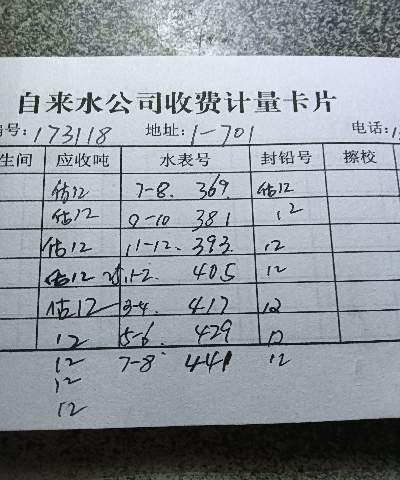 自来水公司收费计量卡片
编号: 173118 地址: 1-701 电话: 1
生间 应收吨 水表号 封铅号 擦校
估12 7-8. 369. 估12
估12 9-10 381 12
估12 11-12. 393 12
估12 1-2. 405 12
估12 3-4. 417 12
12 5-6. 429 12
12 7-8. 441 12
12
12